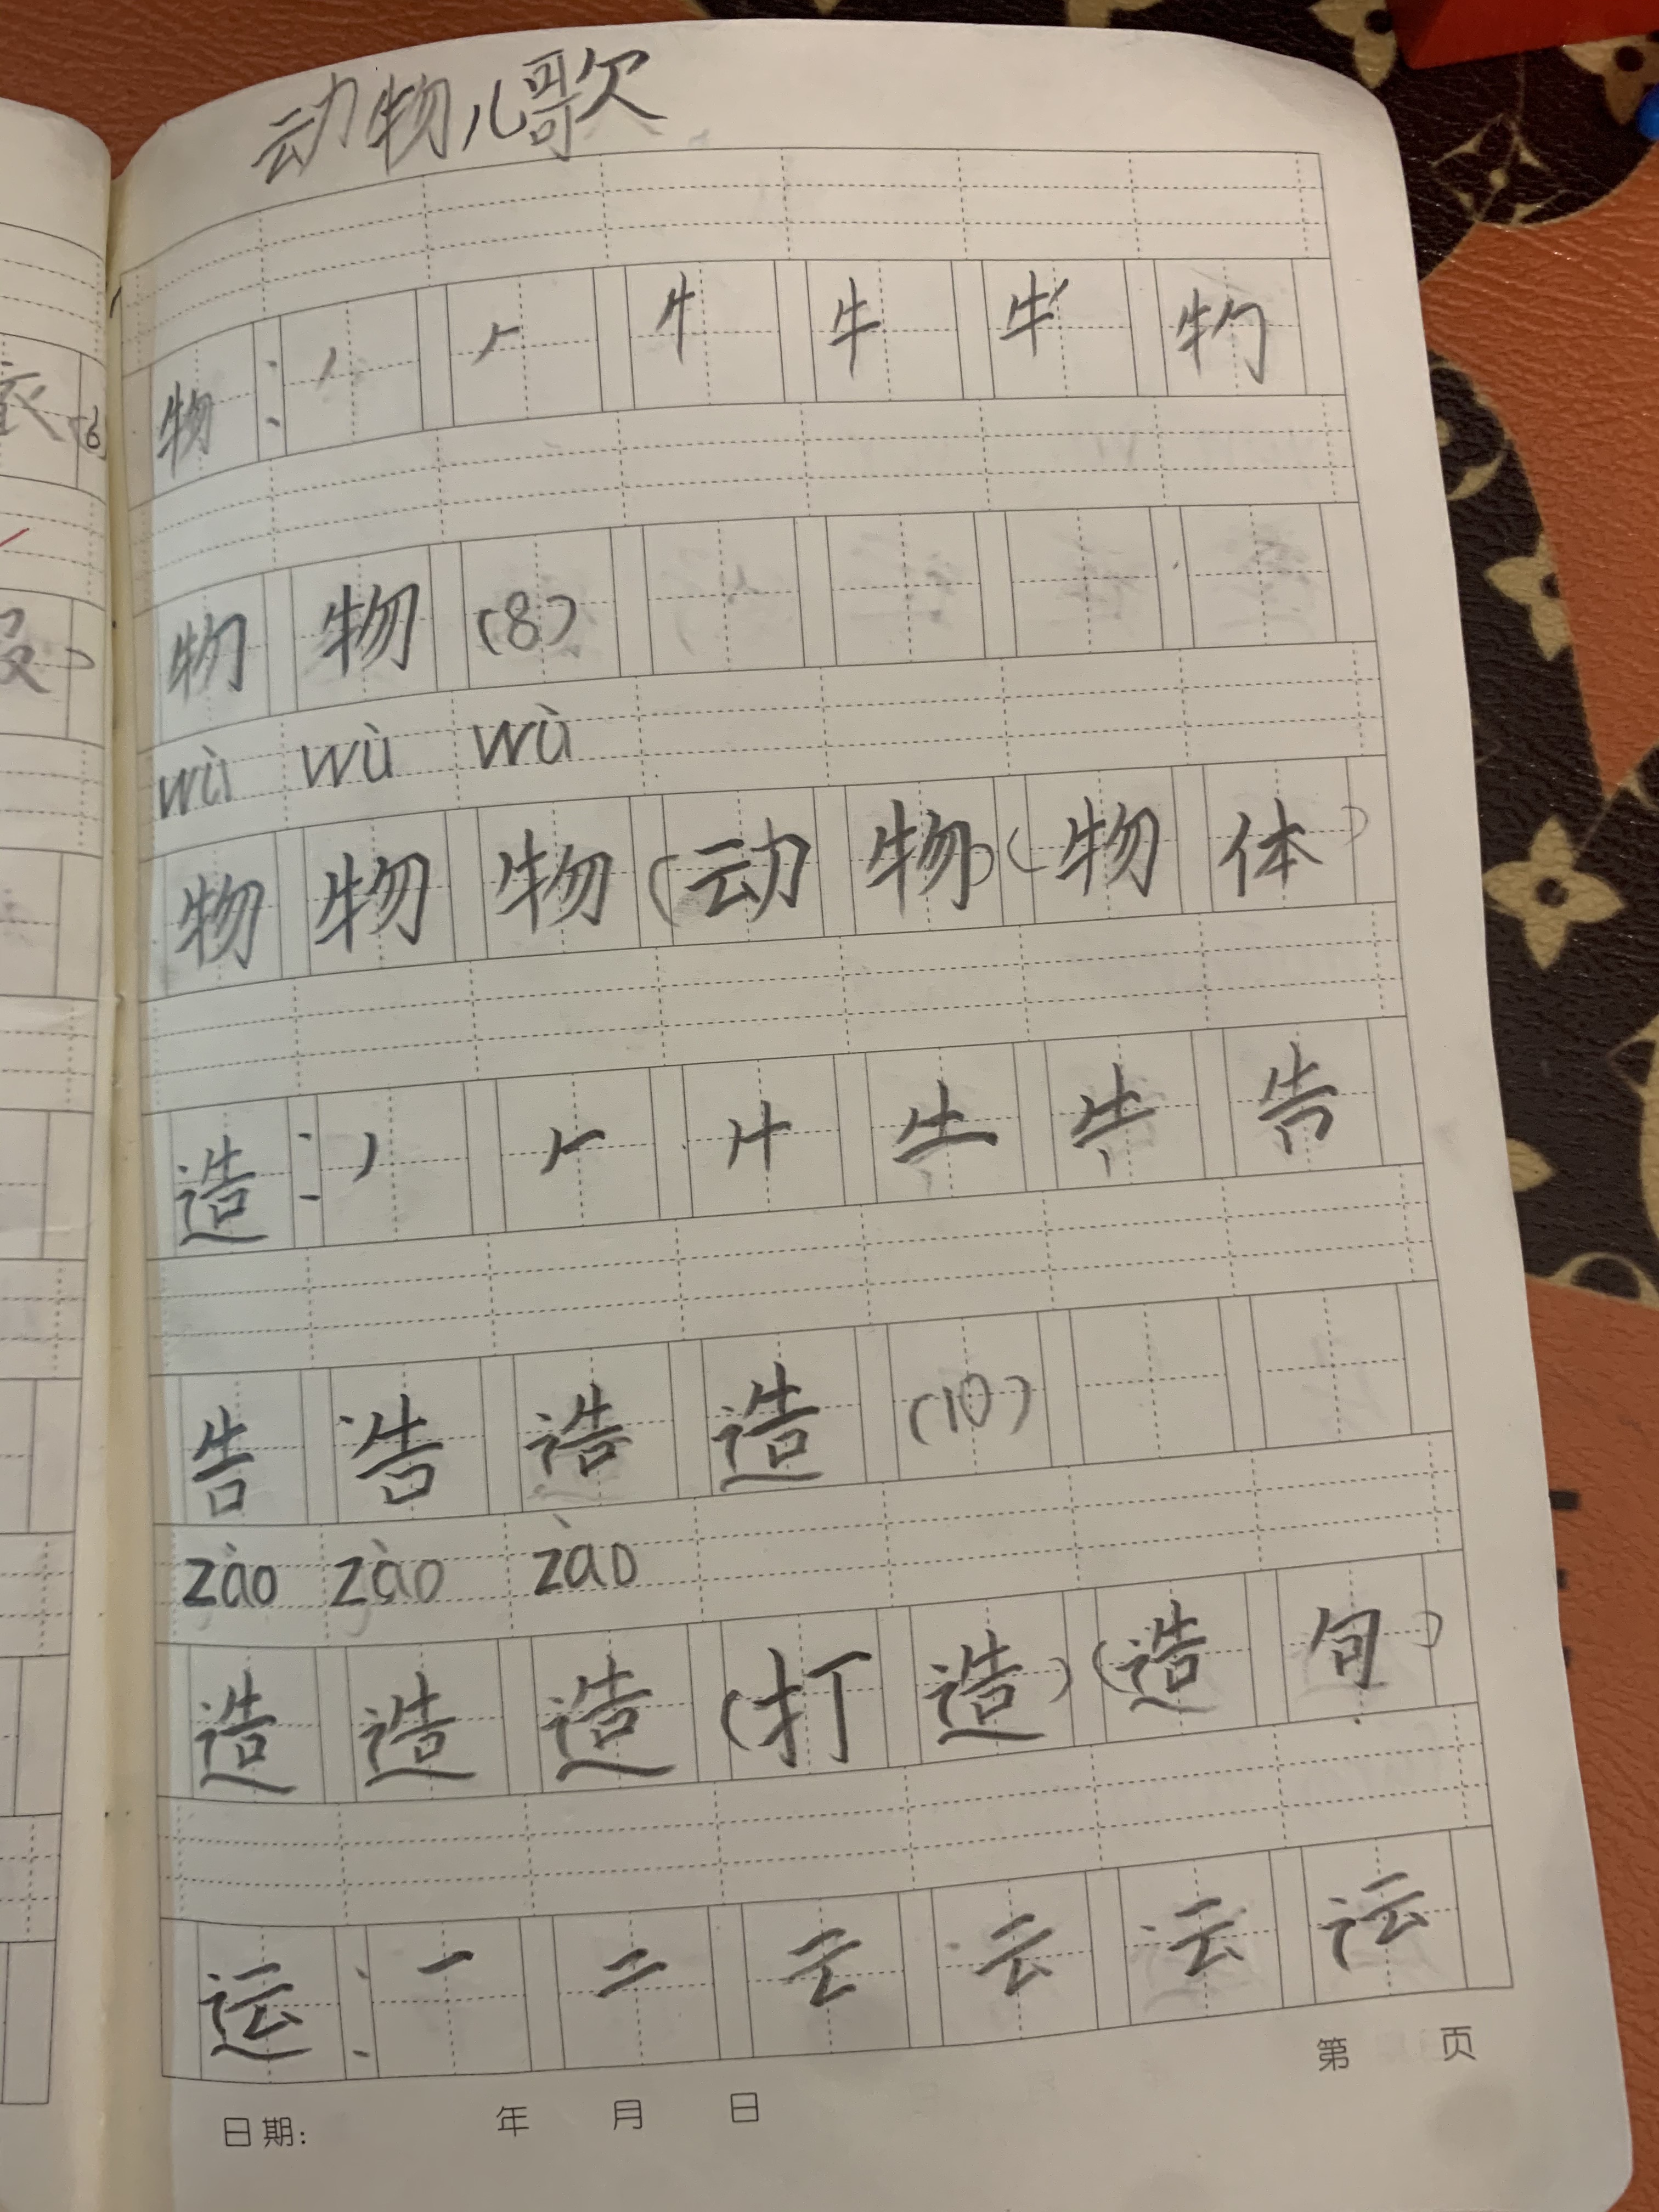 动物儿歌
物：丿 𠂉 牛 牛 物
物 物 (8)
wù wù wù
物 物 物 (动 物) (物 体)
造：丿 𠂉 告
告 告 造 造 (10)
zào zào zào
造 造 造 (打 造) (造 句)
运：一 二 云 云 云
日期： 年 月 日
第 页